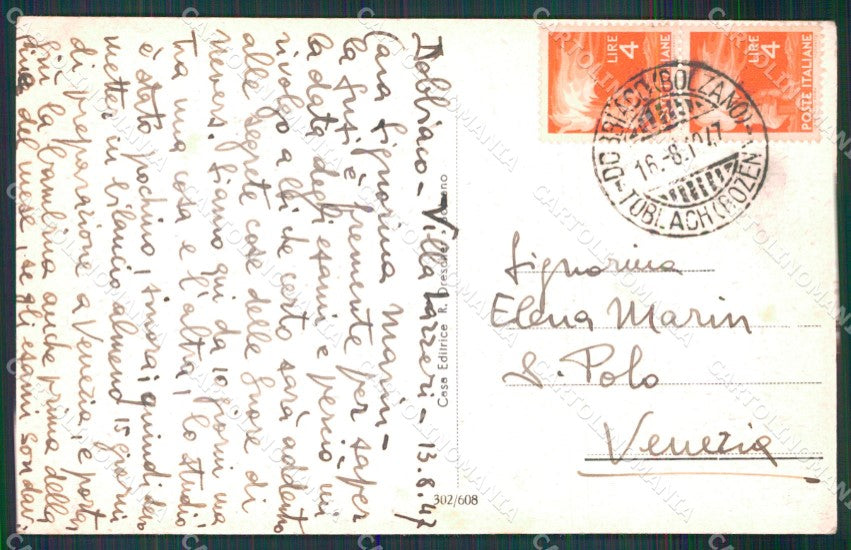 Dobbiaco - Villa Lazzeri - 13.8.47
Cara Signorina Marin -
la Susi è fremente per saper
la data degli esami e perciò mi
rivolgo a lei che certo sarà addentro
alle segrete cose delle Suore di
Nevers. Siamo qui da 10 giorni ma
tra una cosa e l'altra, lo studio
è stato pochino, sinora; quindi devo
metter in bilancio almeno 15 giorni
di preparazione a Venezia, e portar
giù la bambina anche prima della
fine del mese, se gli esami son dei
Casa Editrice R. Bolzano
302/608
LIRE 4
LIRE 4
POSTE ITALIANE
DOBBIACO (BOLZANO)
16.-8.1947
TOBLACH (BOZEN)
Signorina
Elena Marin
S. Polo
Venezia
CARTOLINOMANIA